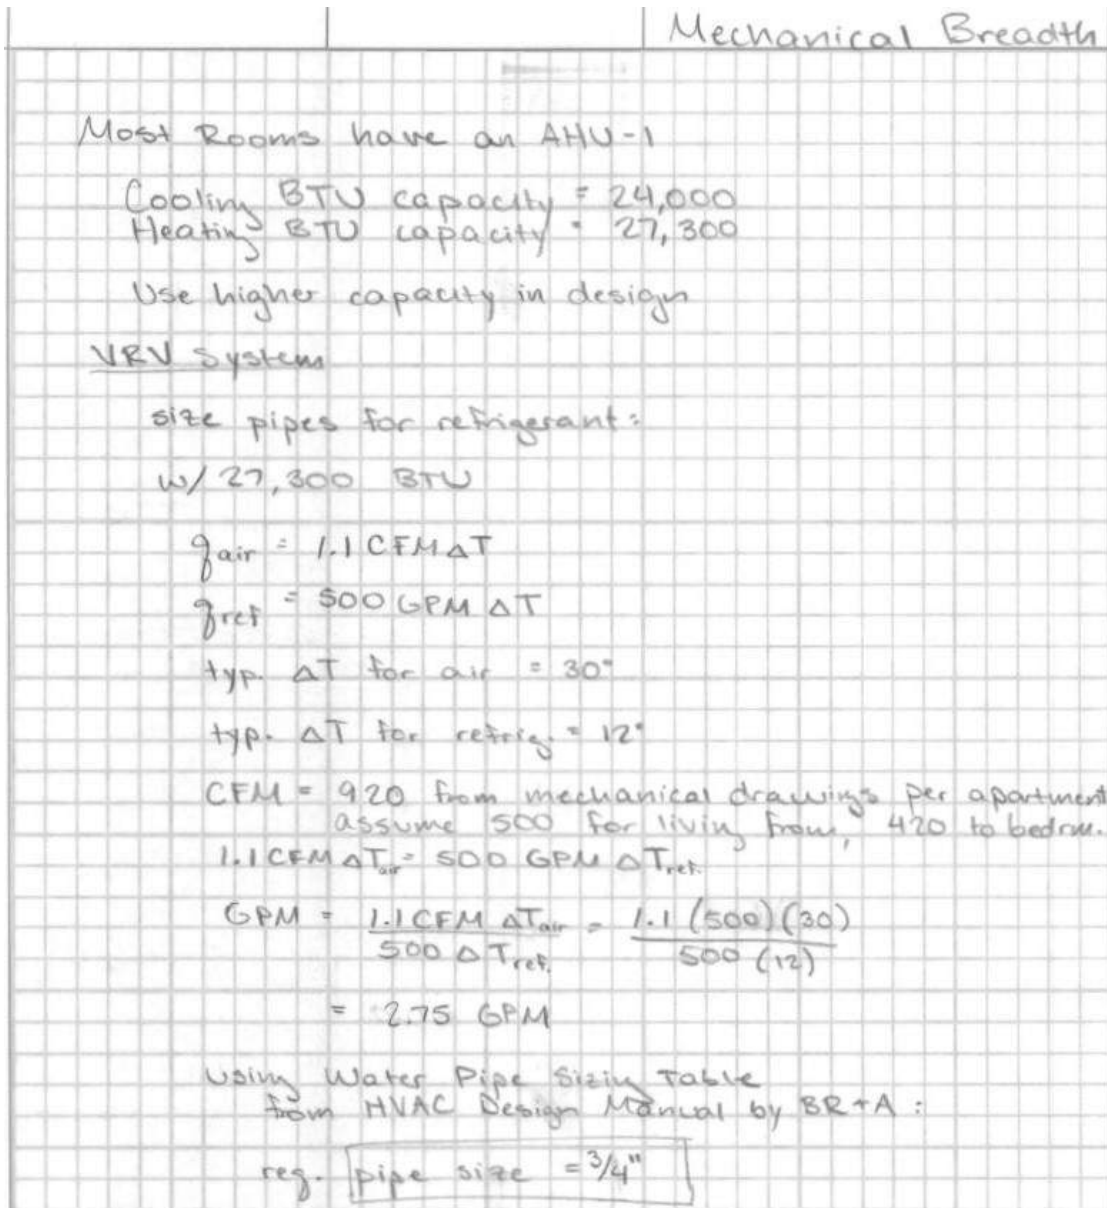 Mechanical Breadth
Most Rooms have an AHU-1
Cooling BTU capacity = 24,000
Heating BTU capacity = 27,300
Use higher capacity in design
VRV System
size pipes for refrigerant:
w/ 27,300 BTU
qair = 1.1 CFM ΔT
qref = 500 GPM ΔT
typ. ΔT for air = 30°
typ. ΔT for refrig. = 12°
CFM = 920 from mechanical drawings per apartment
assume 500 for living from, 420 to bedrm.
1.1 CFM ΔTair = 500 GPM ΔTref.
GPM = 1.1 CFM ΔTair / 500 ΔTref. = 1.1 (500)(30) / 500 (12)
= 2.75 GPM
Using Water Pipe Sizing Table
from HVAC Design Manual by BR+A :
req. pipe size = 3/4"